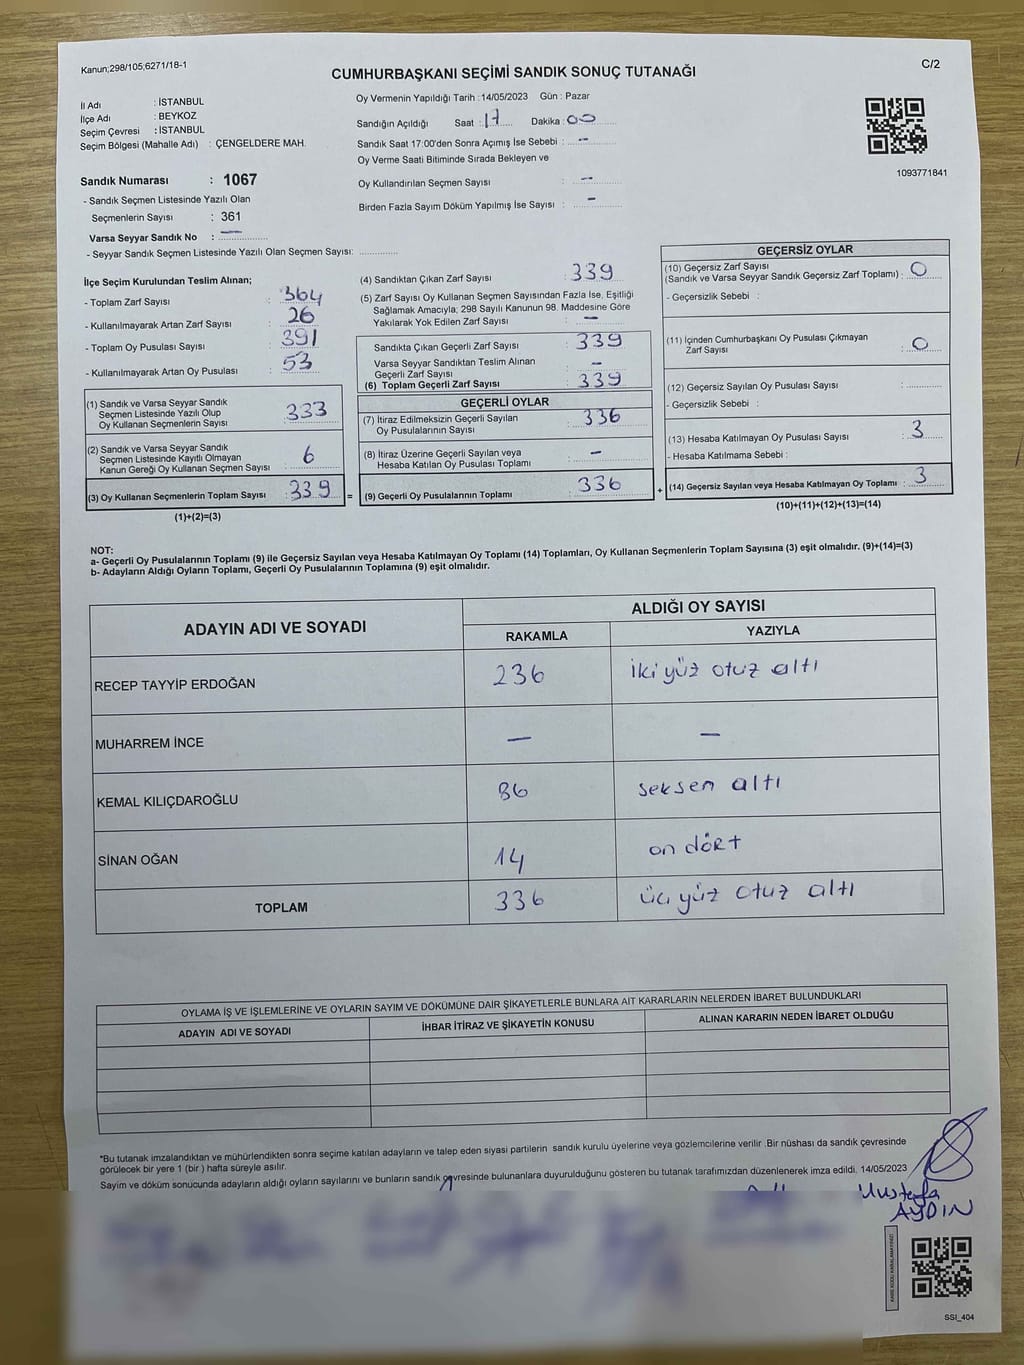 Kanun;298/105;6271/18-1
C/2
CUMHURBAŞKANI SEÇİMİ SANDIK SONUÇ TUTANAĞI
İl Adı : İSTANBUL
İlçe Adı : BEYKOZ
Seçim Çevresi : İSTANBUL
Seçim Bölgesi (Mahalle Adı) : ÇENGELDERE MAH.
Sandık Numarası : 1067
- Sandık Seçmen Listesinde Yazılı Olan
Seçmenlerin Sayısı : 361
Varsa Seyyar Sandık No : —
- Seyyar Sandık Seçmen Listesinde Yazılı Olan Seçmen Sayısı: ..............
Oy Vermenin Yapıldığı Tarih : 14/05/2023 Gün : Pazar
Sandığın Açıldığı Saat : 17 Dakika : 00
Sandık Saat 17:00'den Sonra Açımış İse Sebebi : —
Oy Verme Saati Bitiminde Sırada Bekleyen ve
Oy Kullandırılan Seçmen Sayısı : —
Birden Fazla Sayım Döküm Yapılmış İse Sayısı : —
1093771841
İlçe Seçim Kurulundan Teslim Alınan;
- Toplam Zarf Sayısı : 364
- Kullanılmayarak Artan Zarf Sayısı : 26
- Toplam Oy Pusulası Sayısı : 391
- Kullanılmayarak Artan Oy Pusulası : 53
(1) Sandık ve Varsa Seyyar Sandık
Seçmen Listesinde Yazılı Olup
Oy Kullanan Seçmenlerin Sayısı : 333
(2) Sandık ve Varsa Seyyar Sandık
Seçmen Listesinde Kayıtlı Olmayan
Kanun Gereği Oy Kullanan Seçmen Sayısı : 6
(3) Oy Kullanan Seçmenlerin Toplam Sayısı : 339 =
(1)+(2)=(3)
(4) Sandıktan Çıkan Zarf Sayısı : 339
(5) Zarf Sayısı Oy Kullanan Seçmen Sayısından Fazla İse, Eşitliği
Sağlamak Amacıyla; 298 Sayılı Kanunun 98. Maddesine Göre
Yakılarak Yok Edilen Zarf Sayısı : —
Sandıkta Çıkan Geçerli Zarf Sayısı : 339
Varsa Seyyar Sandıktan Teslim Alınan
Geçerli Zarf Sayısı : —
(6) Toplam Geçerli Zarf Sayısı : 339
GEÇERLİ OYLAR
(7) İtiraz Edilmeksizin Geçerli Sayılan
Oy Pusulalarının Sayısı : 336
(8) İtiraz Üzerine Geçerli Sayılan veya
Hesaba Katılan Oy Pusulası Toplamı : —
(9) Geçerli Oy Pusulalarının Toplamı : 336 +
GEÇERSİZ OYLAR
(10) Geçersiz Zarf Sayısı
(Sandık ve Varsa Seyyar Sandık Geçersiz Zarf Toplamı) : 0
- Geçersizlik Sebebi :
(11) İçinden Cumhurbaşkanı Oy Pusulası Çıkmayan
Zarf Sayısı : 0
(12) Geçersiz Sayılan Oy Pusulası Sayısı : ............
- Geçersizlik Sebebi :
(13) Hesaba Katılmayan Oy Pusulası Sayısı : 3
- Hesaba Katılmama Sebebi :
(14) Geçersiz Sayılan veya Hesaba Katılmayan Oy Toplamı : 3
(10)+(11)+(12)+(13)=(14)
NOT:
a- Geçerli Oy Pusulalarının Toplamı (9) ile Geçersiz Sayılan veya Hesaba Katılmayan Oy Toplamı (14) Toplamları, Oy Kullanan Seçmenlerin Toplam Sayısına (3) eşit olmalıdır. (9)+(14)=(3)
b- Adayların Aldığı Oyların Toplamı, Geçerli Oy Pusulalarının Toplamına (9) eşit olmalıdır.
ADAYIN ADI VE SOYADI ALDIĞI OY SAYISI
RAKAMLA YAZIYLA
RECEP TAYYİP ERDOĞAN 236 iki yüz otuz altı
MUHARREM İNCE — —
KEMAL KILIÇDAROĞLU 86 seksen altı
SİNAN OĞAN 14 on dört
TOPLAM 336 üç yüz otuz altı
OYLAMA İŞ VE İŞLEMLERİNE VE OYLARIN SAYIM VE DÖKÜMÜNE DAİR ŞİKAYETLERLE BUNLARA AİT KARARLARIN NELERDEN İBARET BULUNDUKLARI
ADAYIN ADI VE SOYADI İHBAR İTİRAZ VE ŞİKAYETİN KONUSU ALINAN KARARIN NEDEN İBARET OLDUĞU
*Bu tutanak imzalandıktan ve mühürlendikten sonra seçime katılan adayların ve talep eden siyasi partilerin sandık kurulu üyelerine veya gözlemcilerine verilir .Bir nüshası da sandık çevresinde
görülecek bir yere 1 (bir ) hafta süreyle asılır.
Sayım ve döküm sonucunda adayların aldığı oyların sayılarını ve bunların sandık çevresinde bulunanlara duyurulduğunu gösteren bu tutanak tarafımızdan düzenlenerek imza edildi. 14/05/2023
Mustafa
AYDIN
SSI_404